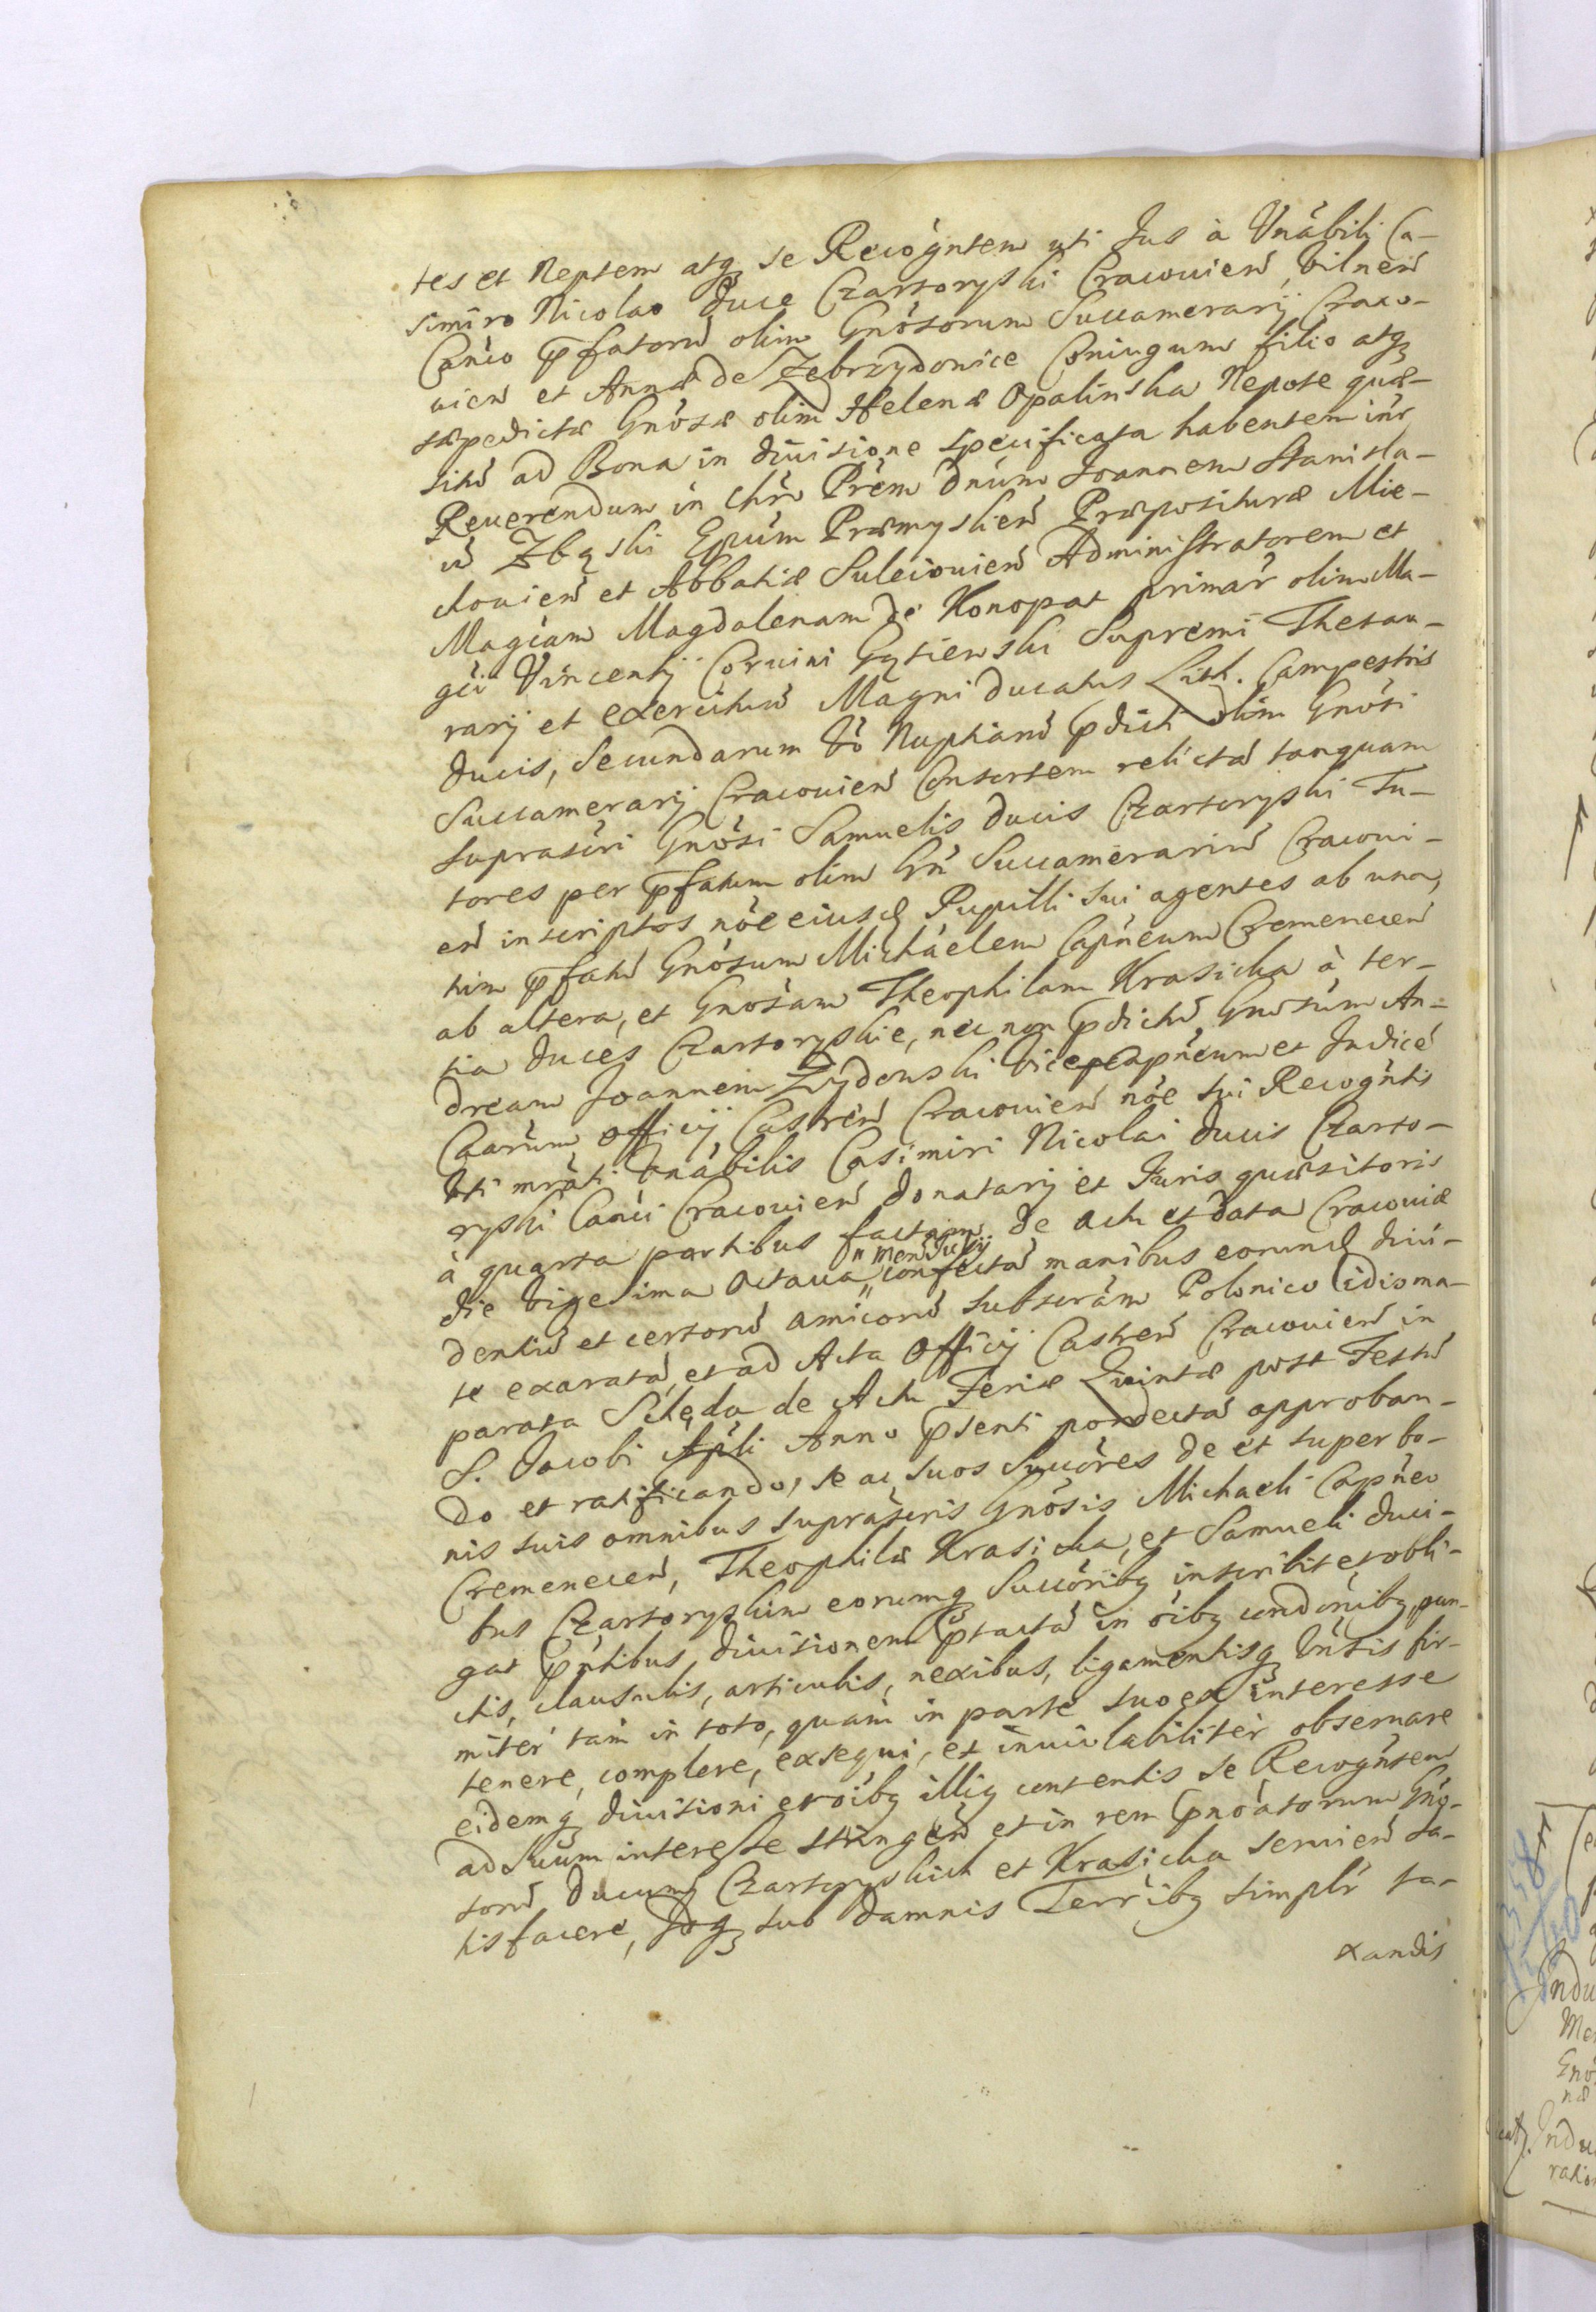 tes et Neptem atq, se Recógntem uti Jus à Vnábili Ca-
simiro Nicolao Duce Czartoryski Cracouień, Vilneń
Cańco pfatorū olim Gnósorum Succamerarij Craco-
uień et Annæ de Zebrzydouice Coniugum filio atq,
sæpedictæ Gnósæ olim Helenæ Opalinska Nepote quæ-
situ ad Bona in diuisione specificata habentem int́r
Reuerendum in Chro Prém Dnúm Joannem Stanisla-
ū Zbąski Epúm Præmyslień Præposituræ Mie-
chouień et Abbatiæ Suleiouień Administratorem et
Magćam Magdalenam de Konopat primaŕ olim Ma-
gći Vincentij Coruini Gąsiewski Supremi Thesau-
rarij et exercituū Magni Ducatus Lith. Campestris
Ducis, Secundarum Vó Nuptiarū pdicti olim Gnósi
Succamerarij Cracouień Consortem relictā tanquam
suprascŕi Gnósi Samuelis Ducis Czartoryski Tu-
tores per pfatum olim Gń Succamerariū Cracoui-
eń inscriptos nóe eiusd Pupilli sui agentes ab una,
tum pfatū Gnósum Michaelem Capńeum Cremeneceń
ab altera, et Gnósam Theophilam Krasicka à ter-
tia Duces Czartoryskie, nec non pdictū Gnósúm An-
dream Joannem Żydowski Vicecapńeum et Judicé
Caarúm Officij Castreń Cracouień nóe sui Recogńtis
Vti mráti Vnábilis Casimiri Nicolai Ducis Czarto-
ryski Cańci Cracouień Donatarij et Juris quæsitoris
à quarta partibus factam de Actu et Data Cracouiæ
die Vigesima Octaua " Men: Julij " confectā manibus eorund diui-
dentiū et certorū amicorū subscrám Polonico idioma-
te exaratā, et ad Acta Officij Castreń Cracouień in
parata Scheda de Actu Feriæ Quintæ post Festū
S. Jacobi Apli Anno pśenti porrectā approban-
do et ratificando, se ac suos Succóres de et super bo-
nis suis omnibus suprascŕis Gnósis Michaeli Capńeo
Cremeneceń, Theophilæ Krasicka, et Samueli Duci-
bus Czartoryskim eorumq Succórib, inscribit et obli-
gat pńtibus, diuisionem ptactā in óib, condónib, pun-
ctis, clausulis, articulis, nexibus, ligamentisq, Vńsis fir-
miter tam in toto, quam in parte suo ex interesse
tenere, complere, exsequi, et inuiolabiliter obseruare
eidemq, diuisioni et óib, illiq contentis se Recogńtem
ad suum interesse stringeń et in rem pnóatorum Gnó-
sorū Ducum Czartoryskich et Krasicka seruień sa-
tisfacere, Idq, sub damnis Terŕib, simplŕ ta-
xandis